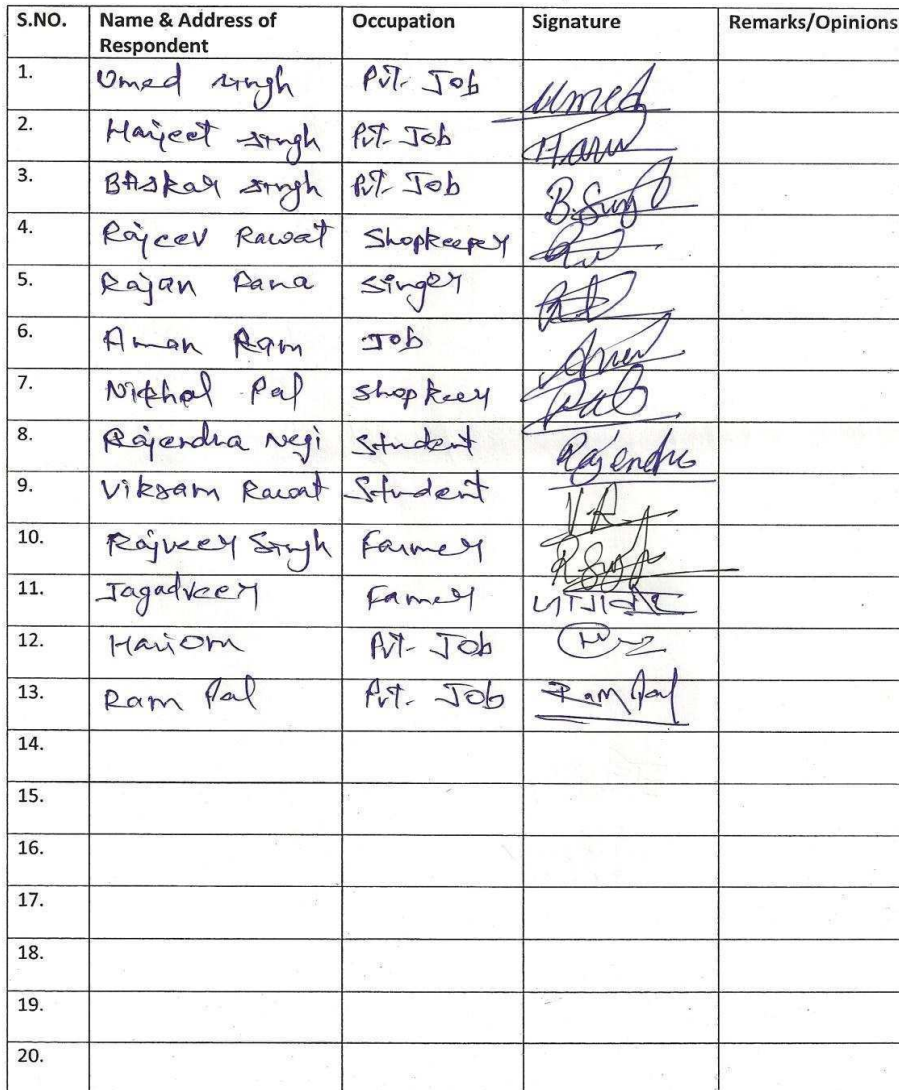 S.NO. Name & Address of Respondent Occupation Signature Remarks/Opinions
1. Umed singh Pvt. Job Umed
2. Harjeet singh Pvt. Job
3. BAskar singh Pvt. Job B.Singh
4. Rajeev Rawat Shopkeeper
5. Rajan Rana Singer
6. Aman Ram Job
7. Pal Shopkeer Pal
8. Rajendra Negi Student Rajendra
9. Vikram Rawat Student V.R.
10. Rajveer Singh Farmer R.Singh
11. Jagadveer Famer
12. Hariom Pvt. Job
13. Ram Pal Pvt. Job Ram Pal
14.
15.
16.
17.
18.
19.
20.